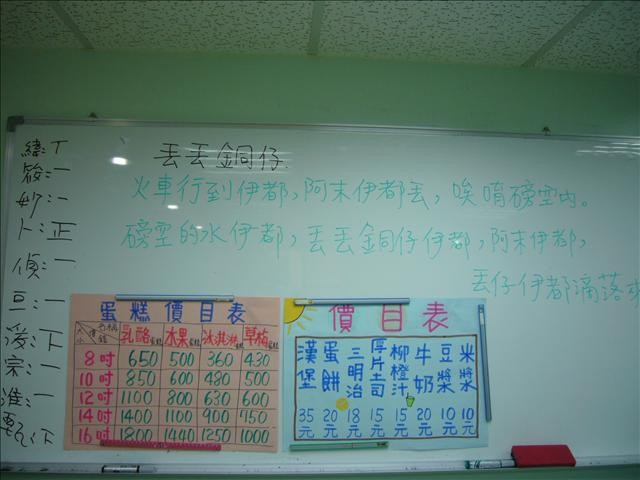 丟丟銅仔
火車行到伊都,阿末伊都丟,唉唷磅空內。
磅空的水伊都,丟丟銅仔伊都,阿末伊都,
丟仔伊都滴落來
緯:丅
筱:一
妙:一
卜:正
偵:一
豆:一
湲:下
宗:一
淮:一
甄:下
蛋糕價目表
大小 名稱 價錢 乳酪蛋糕 水果蛋糕 冰淇淋蛋糕 草莓蛋糕
8吋 650 500 360 430
10吋 850 600 480 500
12吋 1100 800 630 600
14吋 1400 1100 900 750
16吋 1800 1440 1250 1000
價目表
漢堡 蛋餅 三明治 厚片土司 柳橙汁 牛奶 豆漿 米漿
35元 20元 18元 15元 15元 20元 10元 10元